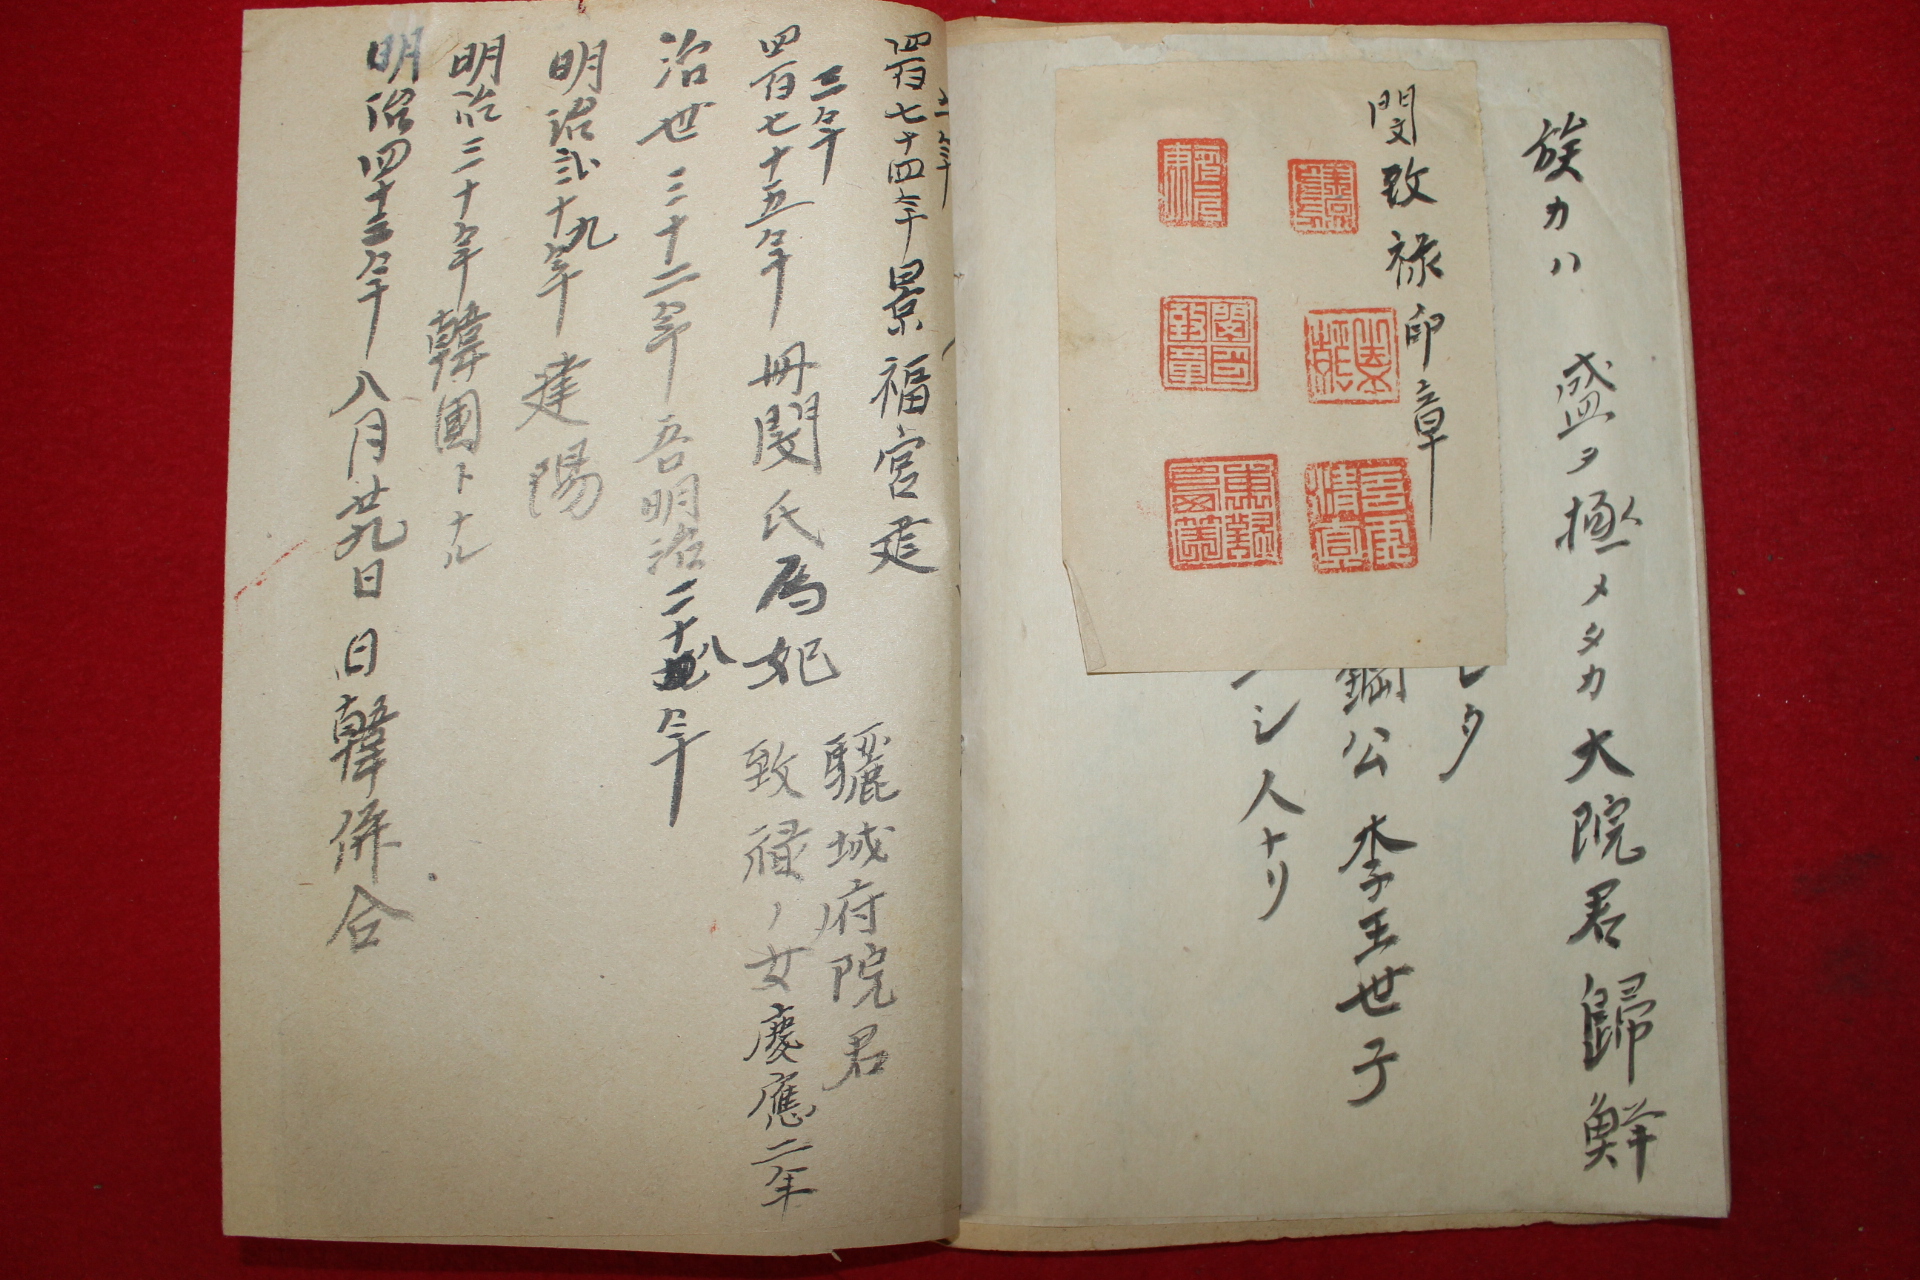 族カハ 盛ヲ極メタカ大院君歸鮮
閔致祿印章
公 李王世子
シ人ナリ
四百七十四年景福宮建
三年
四百七十五年 冊閔氏為妃
驪城府院君
致祿ノ女慶應二年
治世三十二年 吾明治二十八年
明治弐十九年 建陽
明治三十年 韓國トナル
明治四十三年 八月廿九日 日韓併合